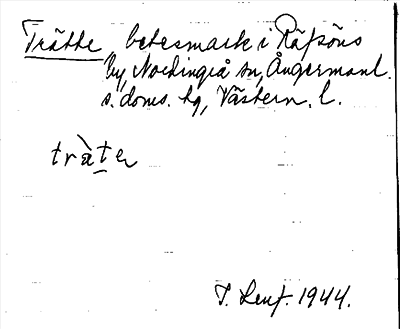 Trätte betesmark i Räfsöns
by, Nordingrå sn, Ångermanl.
s. doms. hg, Västern. l.
trä̀te
T. Lenf. 1944.